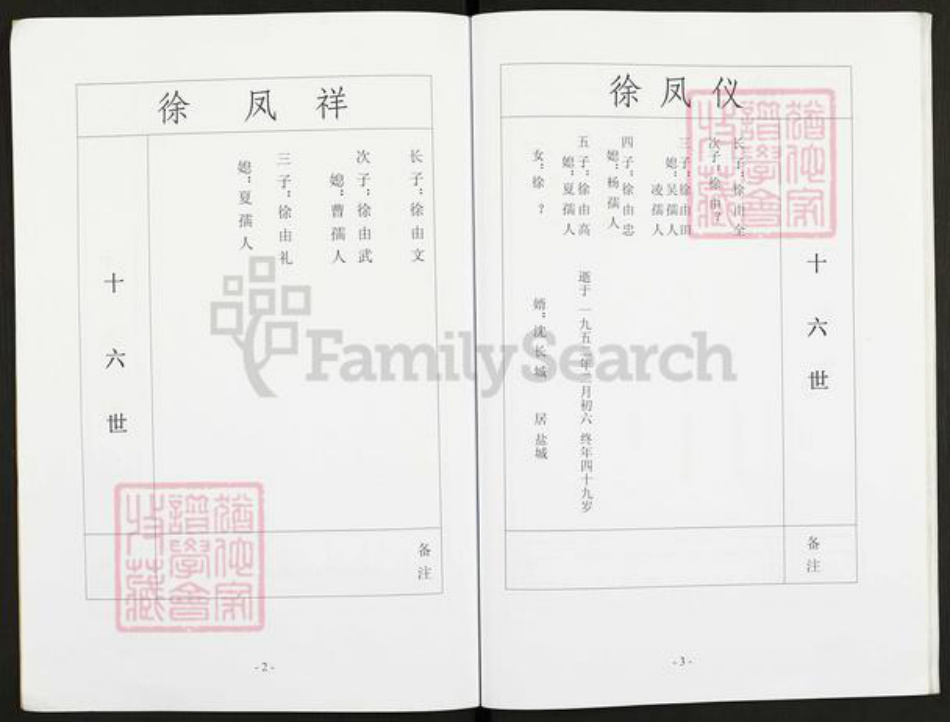 徐凤仪
十六世
长子：徐由全
次子：徐由？
三子：徐由田
媳：吴孺人
凌孺人
四子：徐由忠
媳：杨孺人
五子：徐由高 逝于一九五三年二月初六 终年四十九岁
媳：夏孺人
女：徐？ 婿：沈长城 居盐城
备注
- 3 -
徐凤祥
长子：徐由文
次子：徐由武
媳：曹孺人
三子：徐由礼
媳：夏孺人
十六世
备注
- 2 -
FamilySearch